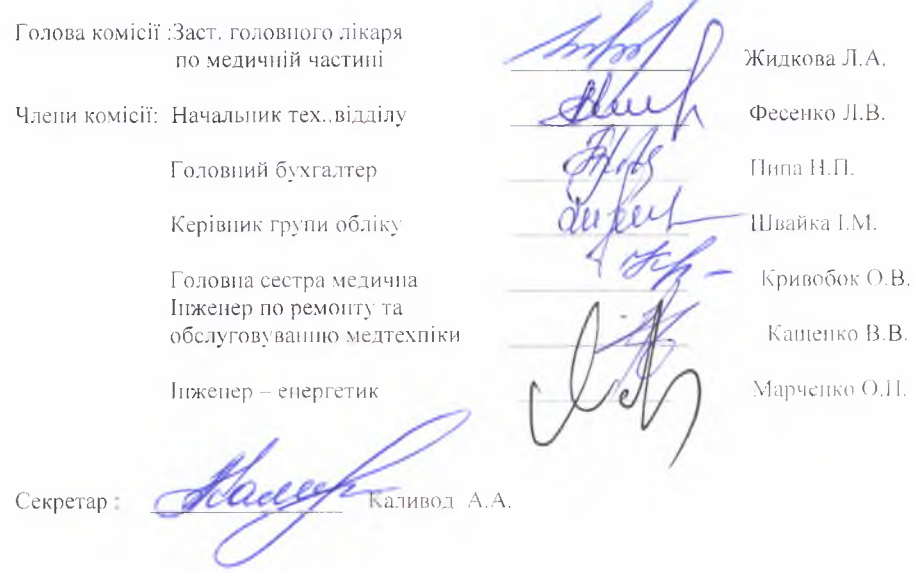 Голова комісії :Заст. головного лікаря
по медичній частині Жидкова Л.А.
Члени комісії: Начальник тех..відділу Фесенко Л.В.
Головний бухгалтер Пипа Н.П.
Керівник групи обліку Швайка І.М.
Головна сестра медична Кривобок О.В.
Інженер по ремонту та
обслуговуванню медтехніки Кащенко В.В.
Інженер – енергетик Марченко О.П.
Секретар : Каливод А.А.